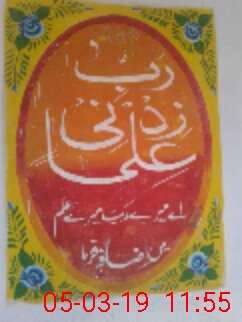 رب
زدنی
علما
اے میرے رب میرے علم
میں اضافہ فرما
05-03-19 11:55